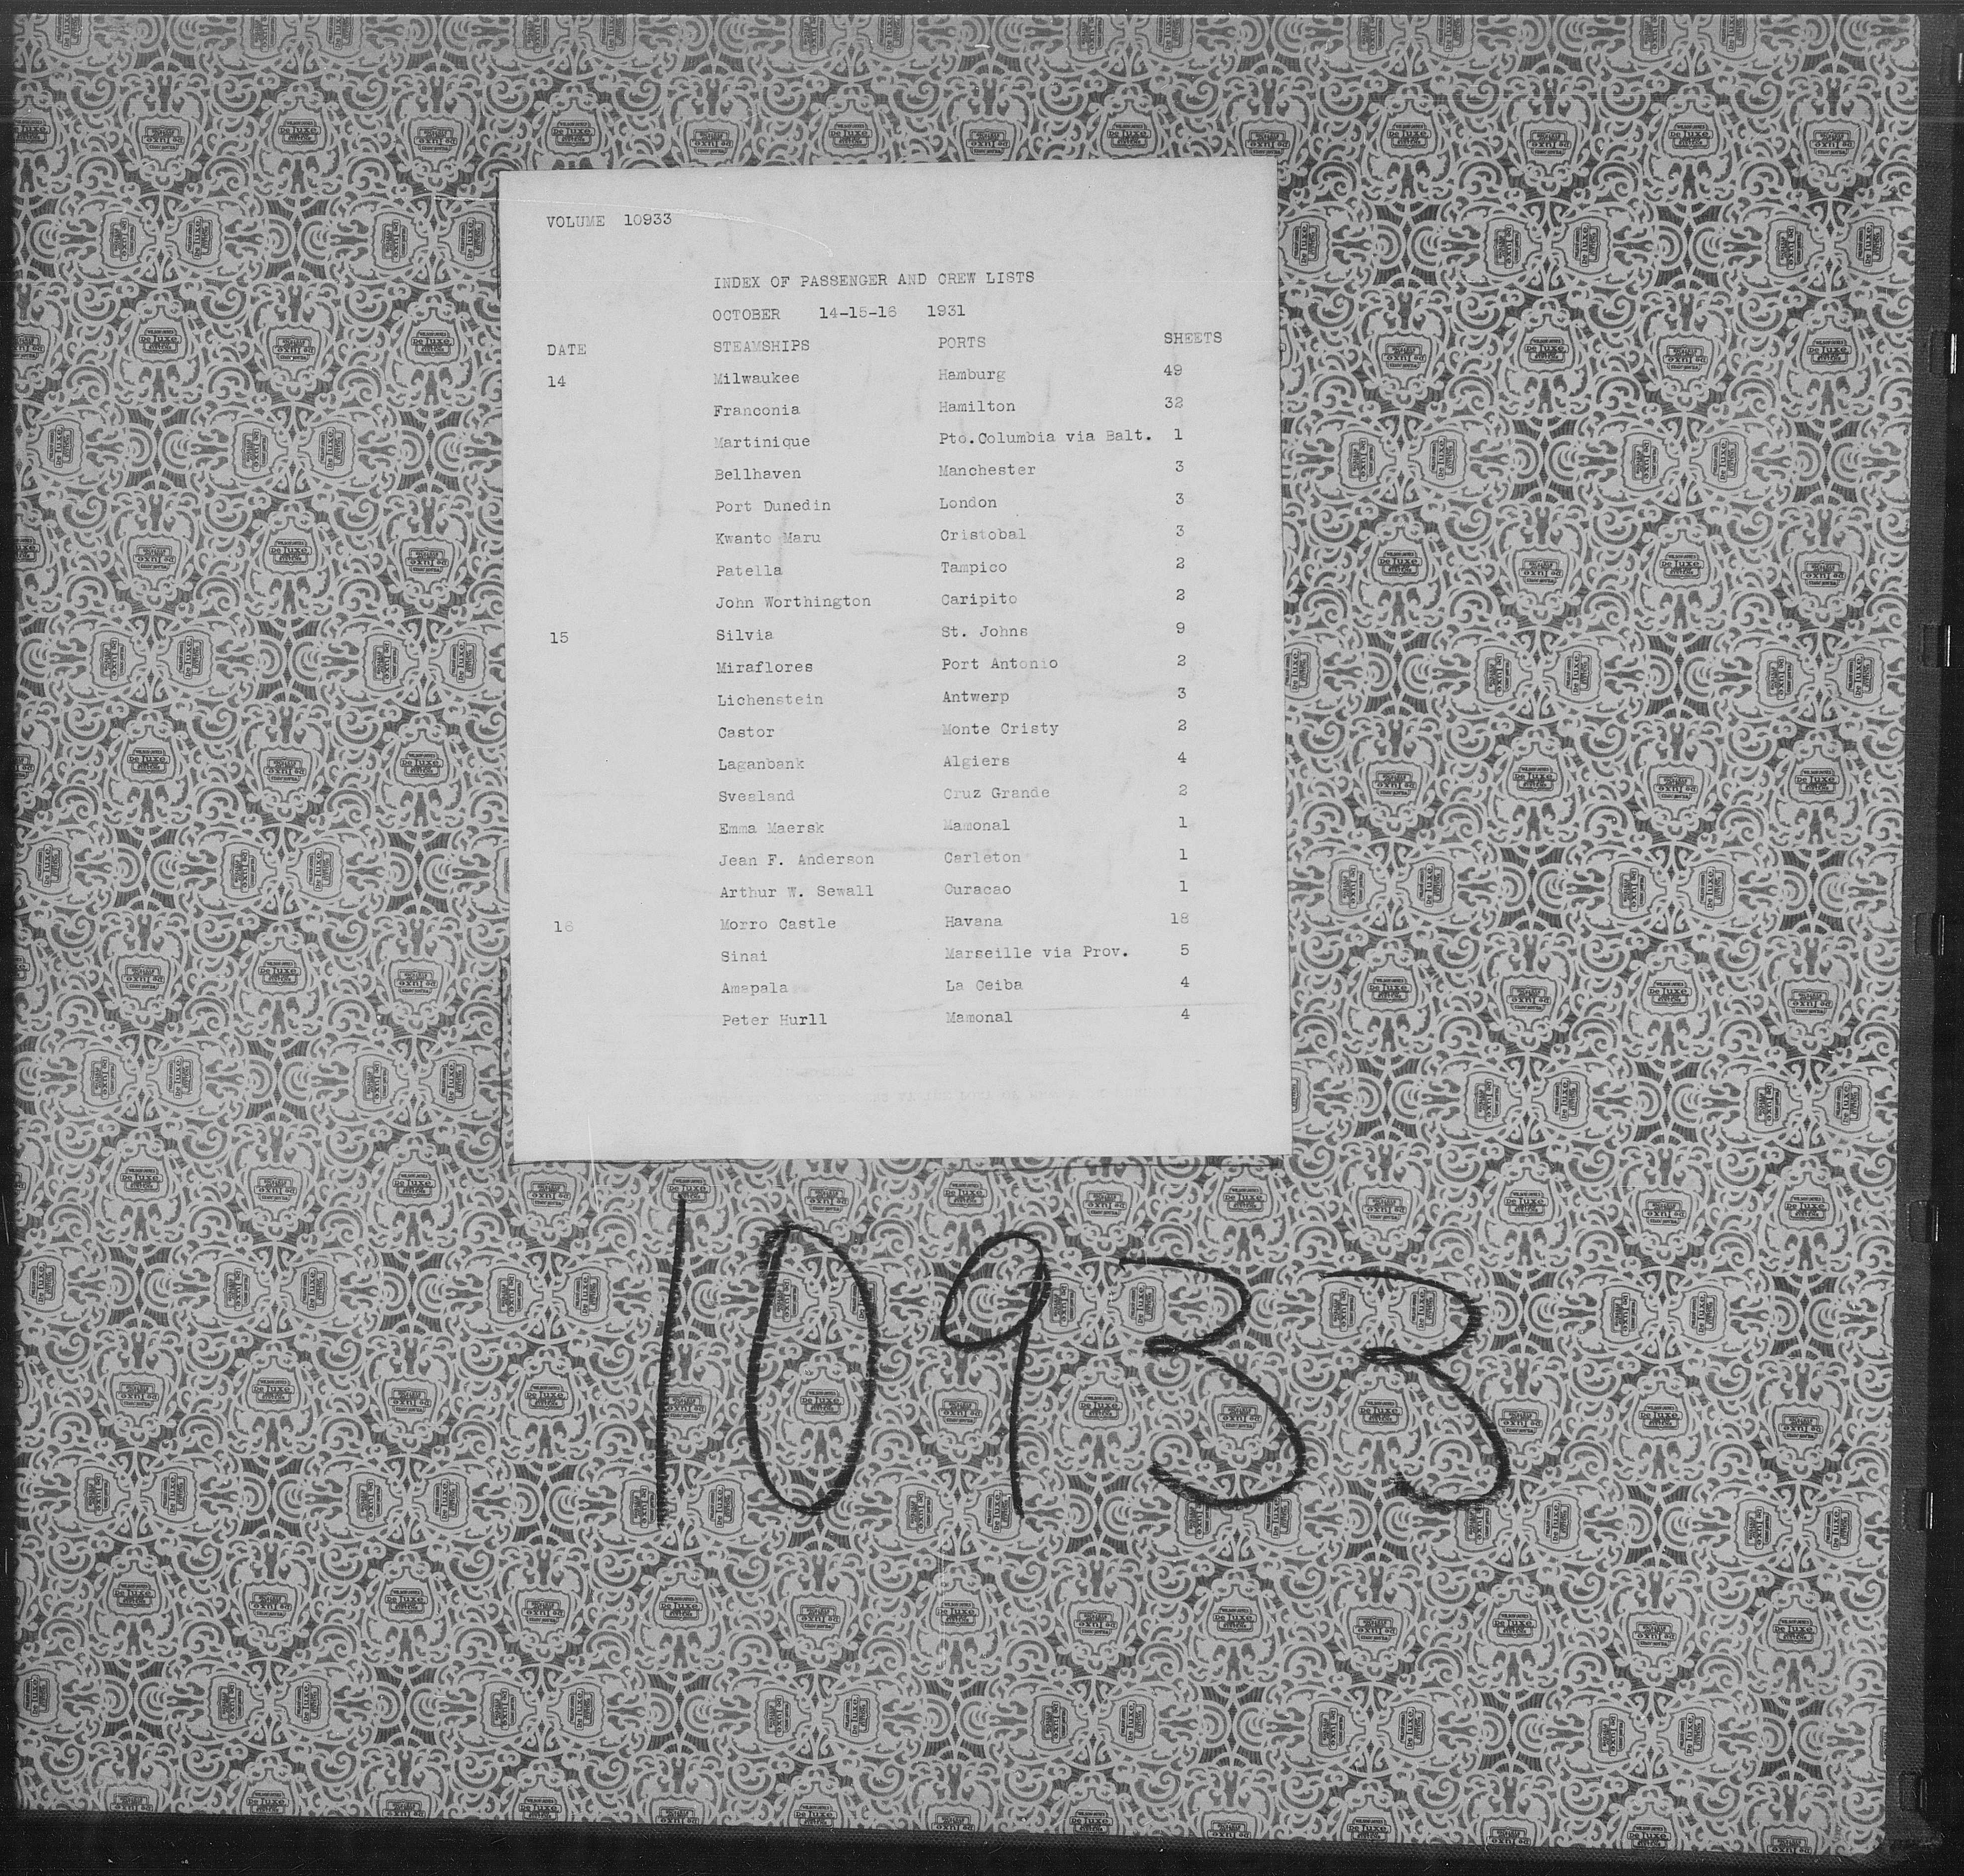 VOLUME 10933
INDEX OF PASSENGER AND CREW LISTS
OCTOBER 14-15-16 1931
DATE STEAMSHIPS PORTS SHEETS
14 Milwaukee Hamburg 49
Franconia Hamilton 32
Martinique Pto.Columbia via Balt. 1
Bellhaven Manchester 3
Port Dunedin London 3
Kwanto Maru Cristobal 3
Patella Tampico 2
John Worthington Caripito 2
15 Silvia St. Johns 9
Miraflores Port Antonio 2
Lichenstein Antwerp 3
Castor Monte Cristy 2
Laganbank Algiers 4
Svealand Cruz Grande 2
Emma Maersk Mamonal 1
Jean F. Anderson Carleton 1
Arthur W. Sewall Curacao 1
16 Morro Castle Havana 18
Sinai Marseille via Prov. 5
Amapala La Ceiba 4
Peter Hurll Mamonal 4
10933